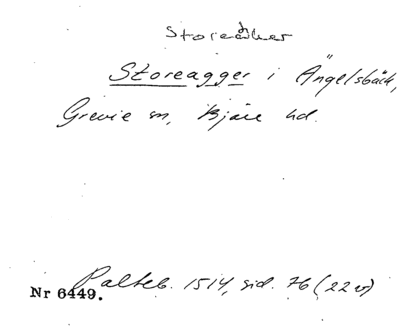 Storeåker
Storeagger i Ängelsbäck,
Grevie sn, Bjäre hd.
Palteb. 1514, sid. 76 (22 v)
Nr 6449.